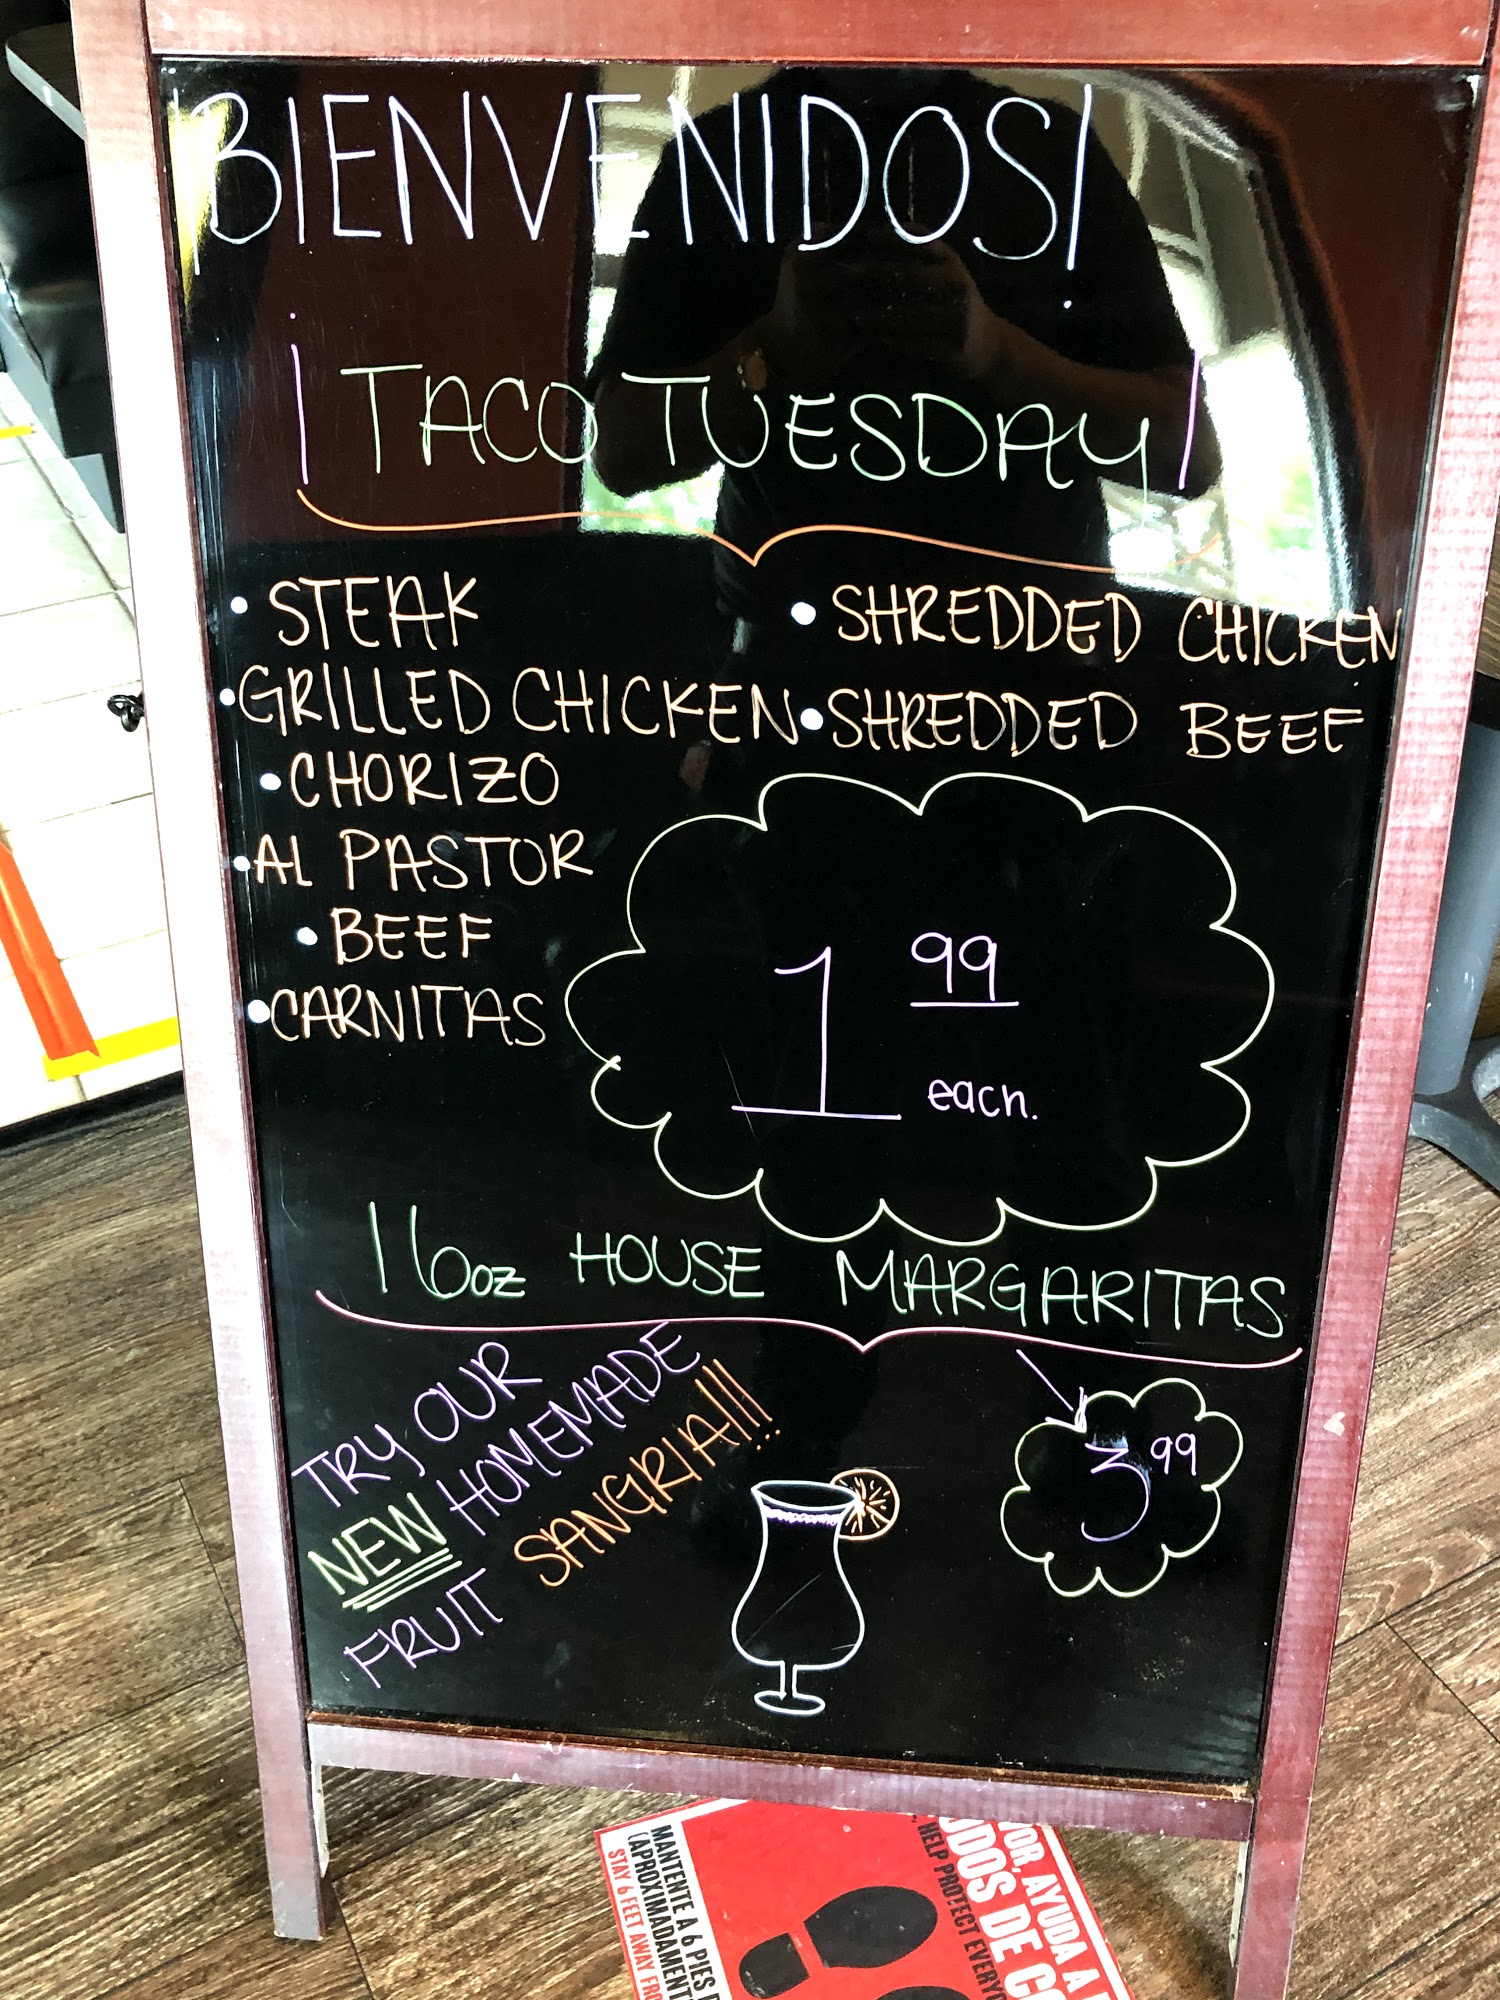 ¡BIENVENIDOS!
¡TACO TUESDAY!
• STEAK
• GRILLED CHICKEN
• CHORIZO
• AL PASTOR
• BEEF
• CARNITAS
• SHREDDED CHICKEN
• SHREDDED BEEF
1 99 each.
16oz HOUSE MARGARITAS
3 99
TRY OUR
NEW HOMEMADE
FRUIT SANGRIA!!!
MANTENTE A 6 PIES
STAY 6 FEET AWAY
AYUDA A
HELP PROTECT
DOS DE